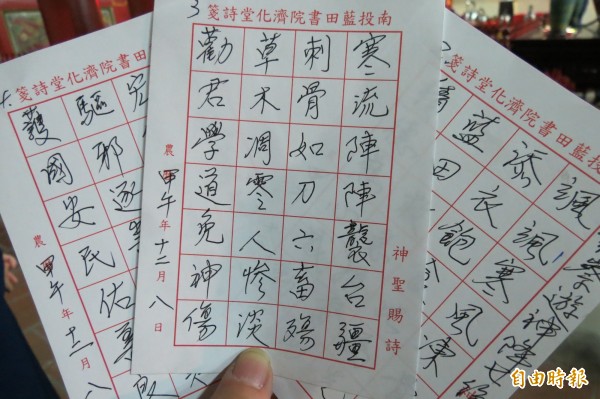 3
南投藍田書院濟化堂詩箋
神聖賜詩
寒流陣陣襲台疆
刺骨如刀六畜殤
草木凋零人慘淡
勸君學道免神傷
農甲午年十二月八日
4.
書院濟化堂詩箋
驅邪逐
護國安民佑
農甲午年十二月八
藍田書院濟化堂詩箋
颯颯寒風凍
添衣飽
藍田
自由時報